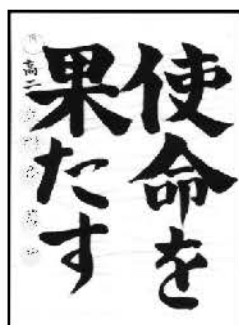 使命を
果たす
高二